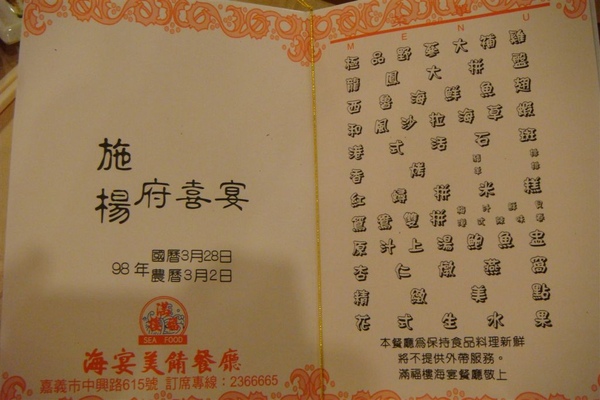 施
楊
府喜宴
98年
國曆3月28日
農曆3月2日
SEA FOOD
海宴美餚餐廳
嘉義市中興路615號 訂席專線：2366665
MENU
極品野蕈大補雞
龍鳳大拼盤
西魯海鮮魚翅
和風沙拉海草蝦
港式活石斑
香烤
紅蟳拼米糕
鴛鴦雙拼
原汁上湯鮑魚盅
杏仁燉燕窩
精緻美點
花式生水果
本餐廳為保持食品料理新鮮
將不提供外帶服務。
滿福樓海宴餐廳敬上